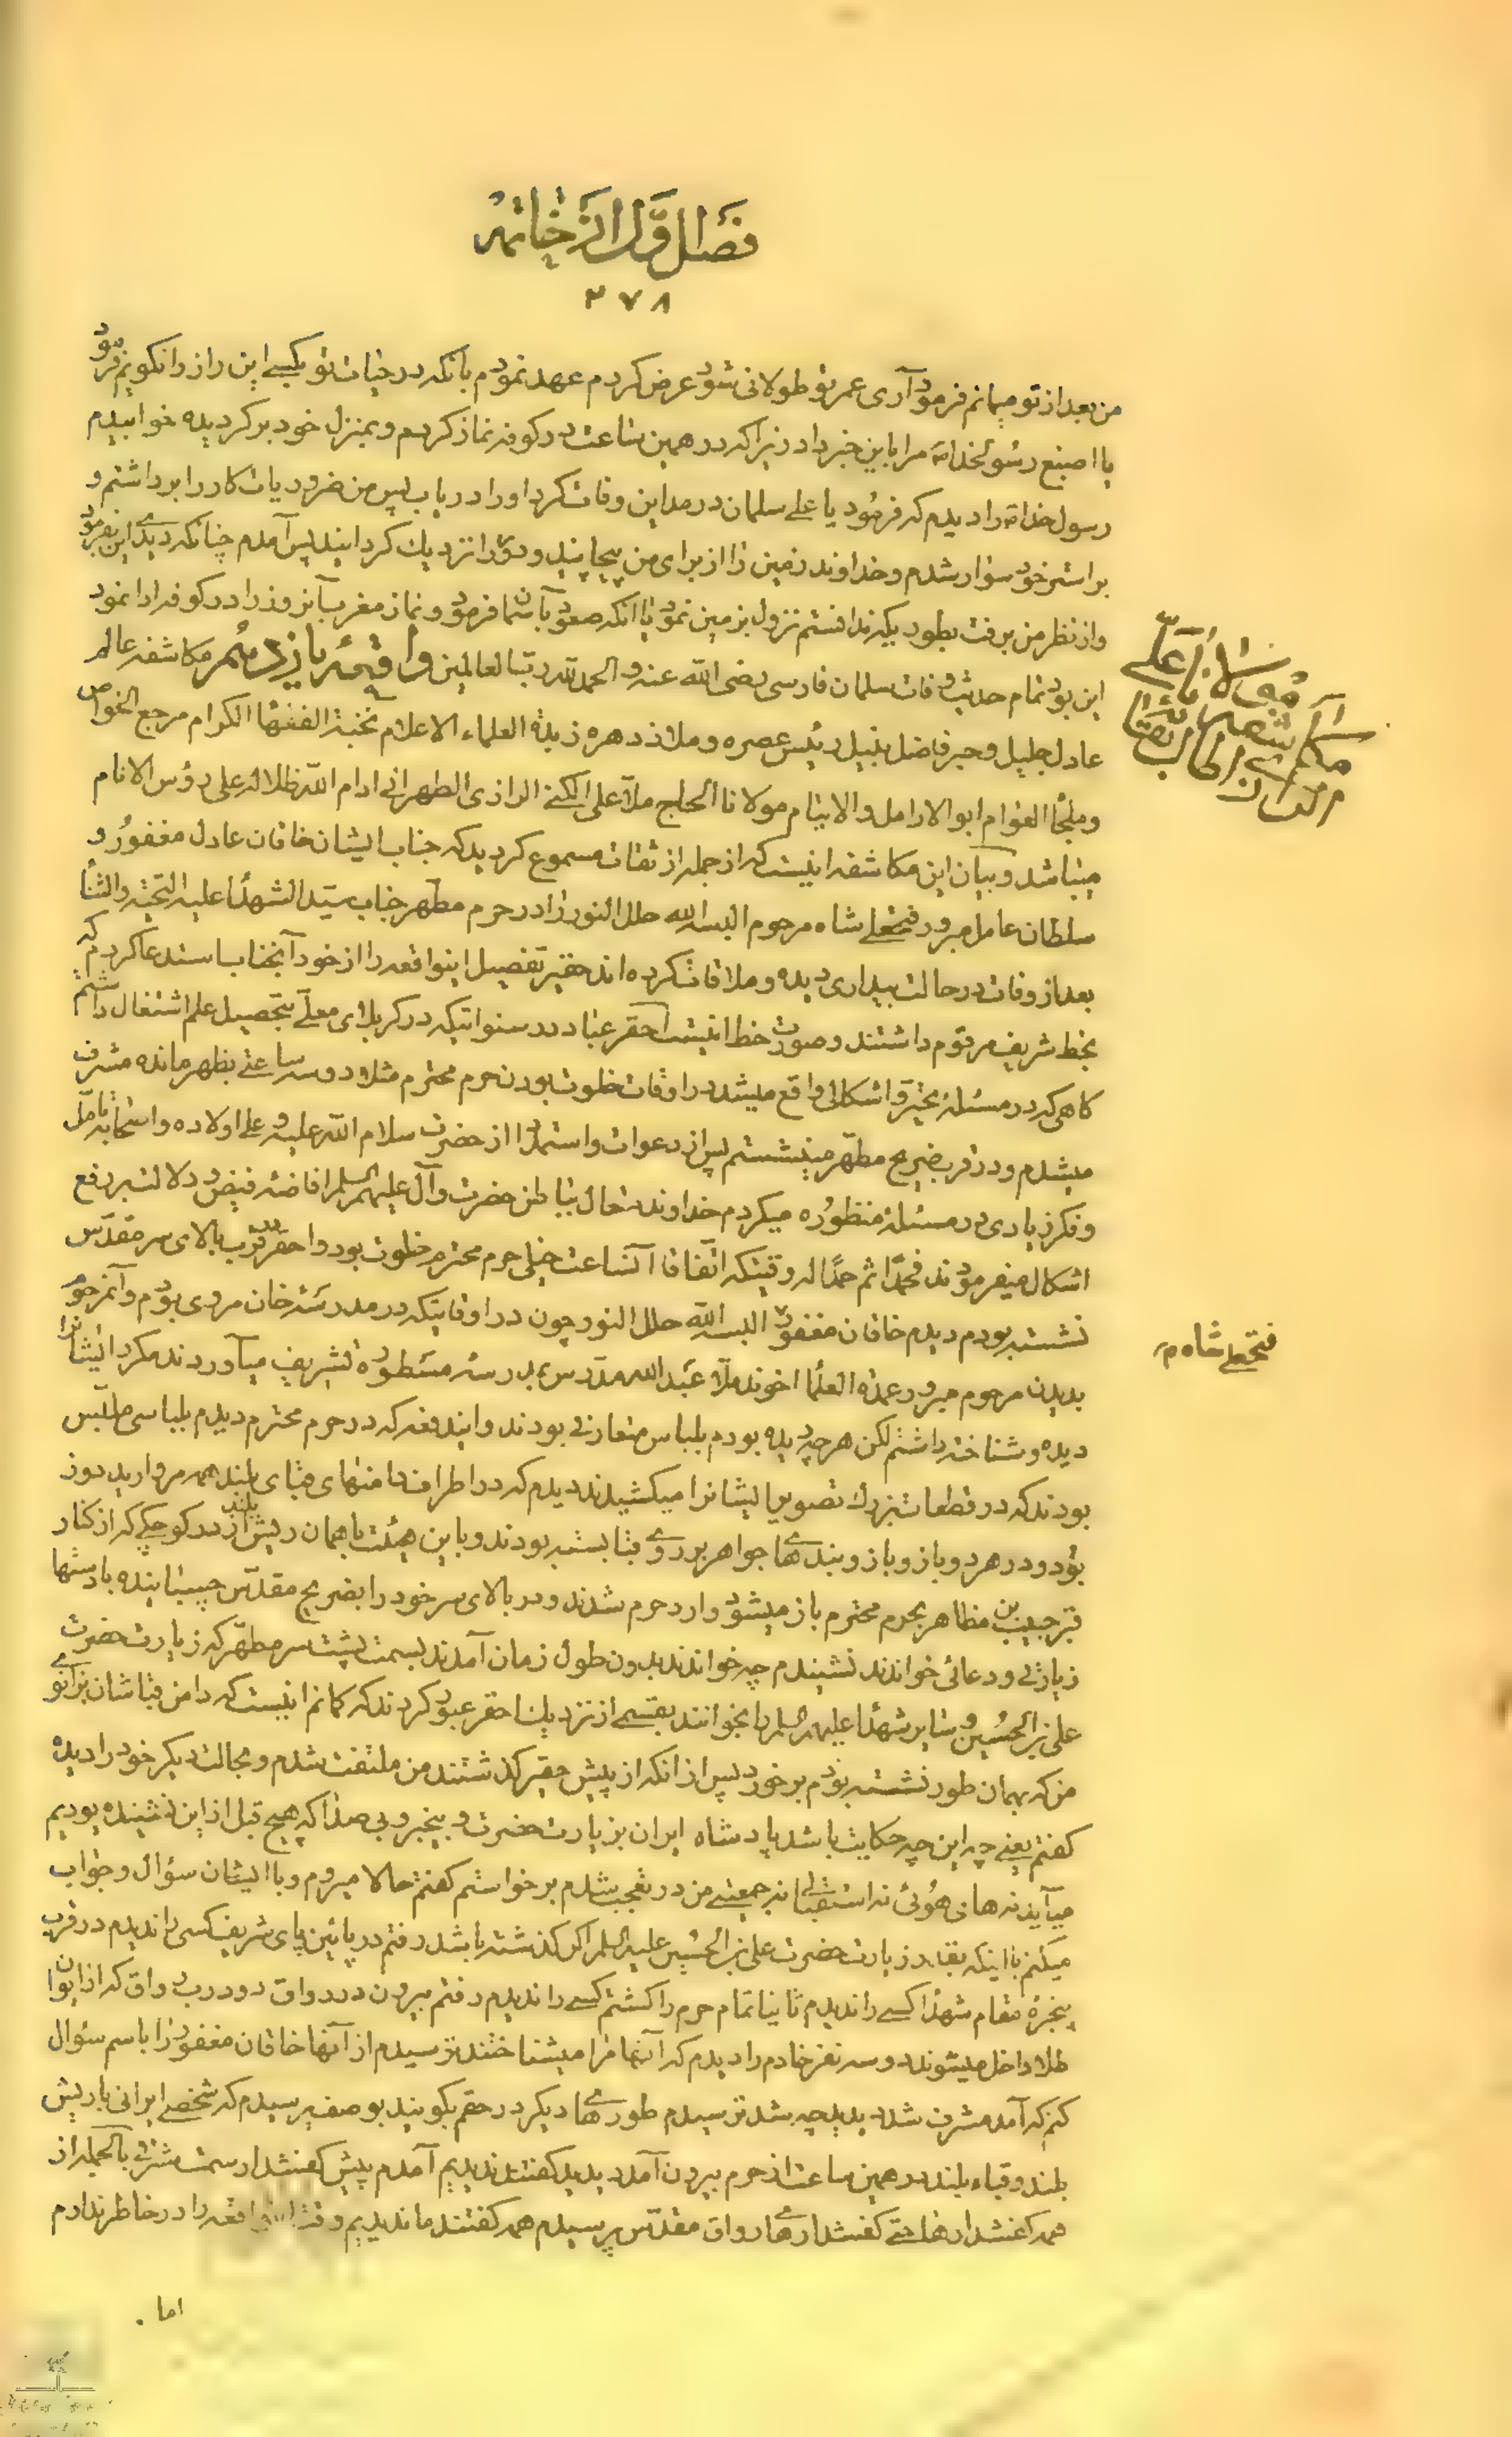 فصل اول از خاتمه
۳۷۸
من بعد از تو میمانم فرمود آری عمر تو طولانی شود عرض کردم عهد نمودم بانکه در حیات تو بکسی این راز را نکویم فرمود
یا اصبغ رسول خدا مرا باین خبر داد زیرا که در همین ساعت در کوفه نماز کردم و بمنزل خود برکردیده خوابیدم
رسول خدا را دیدم که فرمود یا علی سلمان در مداین وفات کرد او را دریاب پس من ضروریات کار را برداشتم و
بر استر خود سوار شدم و خداوند زمین را از برای من پیچانید و دور را نزدیک کردانید پس آمدم چنانکه دیدی این بفرمود
و از نظر من برفت بطوریکه ندانستم نزول بزمین نمود یا انکه صعود بآسمان فرمود و نماز مغرب آنروز را در کوفه ادا نمود
این بود تمام حدیث وفات سلمان فارسی رضی الله عنه و الحمد لله رب العالمین واقعهٔ یازدهم مکاشفه عالم
عادل جلیل و حبر فاضل نبیل رئیس عصره و ملاذ دهره زبدة العلماء الاعلام نخبة الفقهاء الکرام مرجع الخواص
و ملجأ العوام ابو الارامل و الایتام مولانا الحاج ملا علی الکنی الرازی الطهرانی ادام الله ظلاله علی رؤس الانام
میباشد و بیان این مکاشفه اینست که از جمله از ثقات مسموع کردید که جناب ایشان خاقان عادل مغفور و
سلطان عامل مبرور فتحعلی شاه مرحوم البسه الله حلل النور را در حرم مطهر جناب سید الشهداء علیه التحیة والثناء
بعد از وفات در حالت بیداری دیده و ملاقات کرده اند حقیر تفصیل اینواقعه را از خود آنجناب استدعا کردم که
بخط شریف مرقوم داشتند و صورت خط اینست احقر عباد در سنواتیکه در کربلای معلی بتحصیل علم اشتغال داشتم
کاهی که در مسئلهٔ تحیر و اشکالی واقع میشد در اوقات خلوت بودن حرم محترم مثلا دو سه ساعتی بظهر مانده مشرف
میشدم و در قرب ضریح مطهر مینشستم پس از دعوات و استمداد از حضرت سلام الله علیه و علی اولاده و اصحابه تامل
و فکر زیادی در مسئلهٔ منظوره میکردم خداوند متعال بباطن حضرت و آل علیهم السلم افاضه فیض و دلالت بر رفع
اشکال میفرمودند فحمدا ثم حمدا له وقتیکه اتفاقا آنساعت خیلی حرم محترم خلوت بود و احقر در قرب بالای سر مقدس
نشسته بودم دیدم خاقان مغفور البسه الله حلل النور چون در اوقاتیکه در مدرسه خان مروی بودم و آنمرحوم
بدیدن مرحوم مبرور عمدة العلماء اخوند ملا عبد الله مدرس مدرسه مسطوره تشریف میآوردند مکرر ایشانرا
دیده و شناخته داشتم لکن هر چه دیده بودم بلباس متعارفی بودند و ایندفعه که در حرم محترم دیدم بلباسی ملبس
بودند که در قطعات بزرك تصویر ایشانرا میکشیدند دیدم که در اطراف دامنهای قبای بلند همه مروارید دوز
بود و در هر دو بازو بازوبندی ها جواهر بر روی قبا بسته بودند و باین هیئت با همان ریش بلند از در کوچکی که از کنار
قبر حبیب بن مظاهر بحرم محترم باز میشود وارد حرم شدند و در بالای سر خود را بضریح مقدس چسبانیده با دستها
زیارتی و دعائی خواندند نشنیدم چه خواندند بدون طول زمان آمدند بسمت پشت سر مطهر که زیارت حضرت
علی بن الحسین و سایر شهدا علیهم السلم را بخوانند بقسمی از نزدیک احقر عبور کردند که کمانم اینست که دامن قباشان بزانوی
من که بهمان طور نشسته بودم برخورد پس از انکه از پیش حقیر کذشتند من ملتفت شدم و بحالت دیکر خود را دیده
کفتم یعنی چه این چه حکایت باشد پادشاه ایران بزیارت حضرت و بیخبر و بی صدا که هیچ قبل از این نشنیده بودیم
میآید نه های هوئی نه استقبالی نه جمعیتی من در تعجب شدم برخواستم کفتم حالا میروم و با ایشان سؤال و جواب
میکنم با اینکه بقدر زیارت حضرت علی بن الحسین علیه السلم اکر کذشته باشد رفتم در پائین پای شریف کسی را ندیدم در قرب
پنجرهٔ مقام شهدا کسی را ندیدم ثانیا تمام حرم را کشتم کسی را ندیدم رفتم بیرون در رواق دو درب رواق که از ایوان
طلا داخل میشوند دو سه نفر خادم را دیدم که آنها مرا میشناختند ترسیدم از آنها خاقان مغفور را باسم سؤال
کنم که آمد مشرف شد دیدید چه شد ترسیدم طوری ها دیکر در حقم بکویند بوصف پرسیدم که شخصی ایرانی با ریش
بلند و قباء بلند در همین ساعت از حرم بیرون آمد دیدید کفتند ندیدیم آمدم پیش کفشدار سمت مشرقی بالجمله از
همه کفشدارها حتی کفشداری ها رواق مقدس پرسیدم همه کفتند ما ندیدیم وقت واقعه را در خاطر ندارم
اما
مولانا علی
مکاشفه
فتحعلی شاه مر